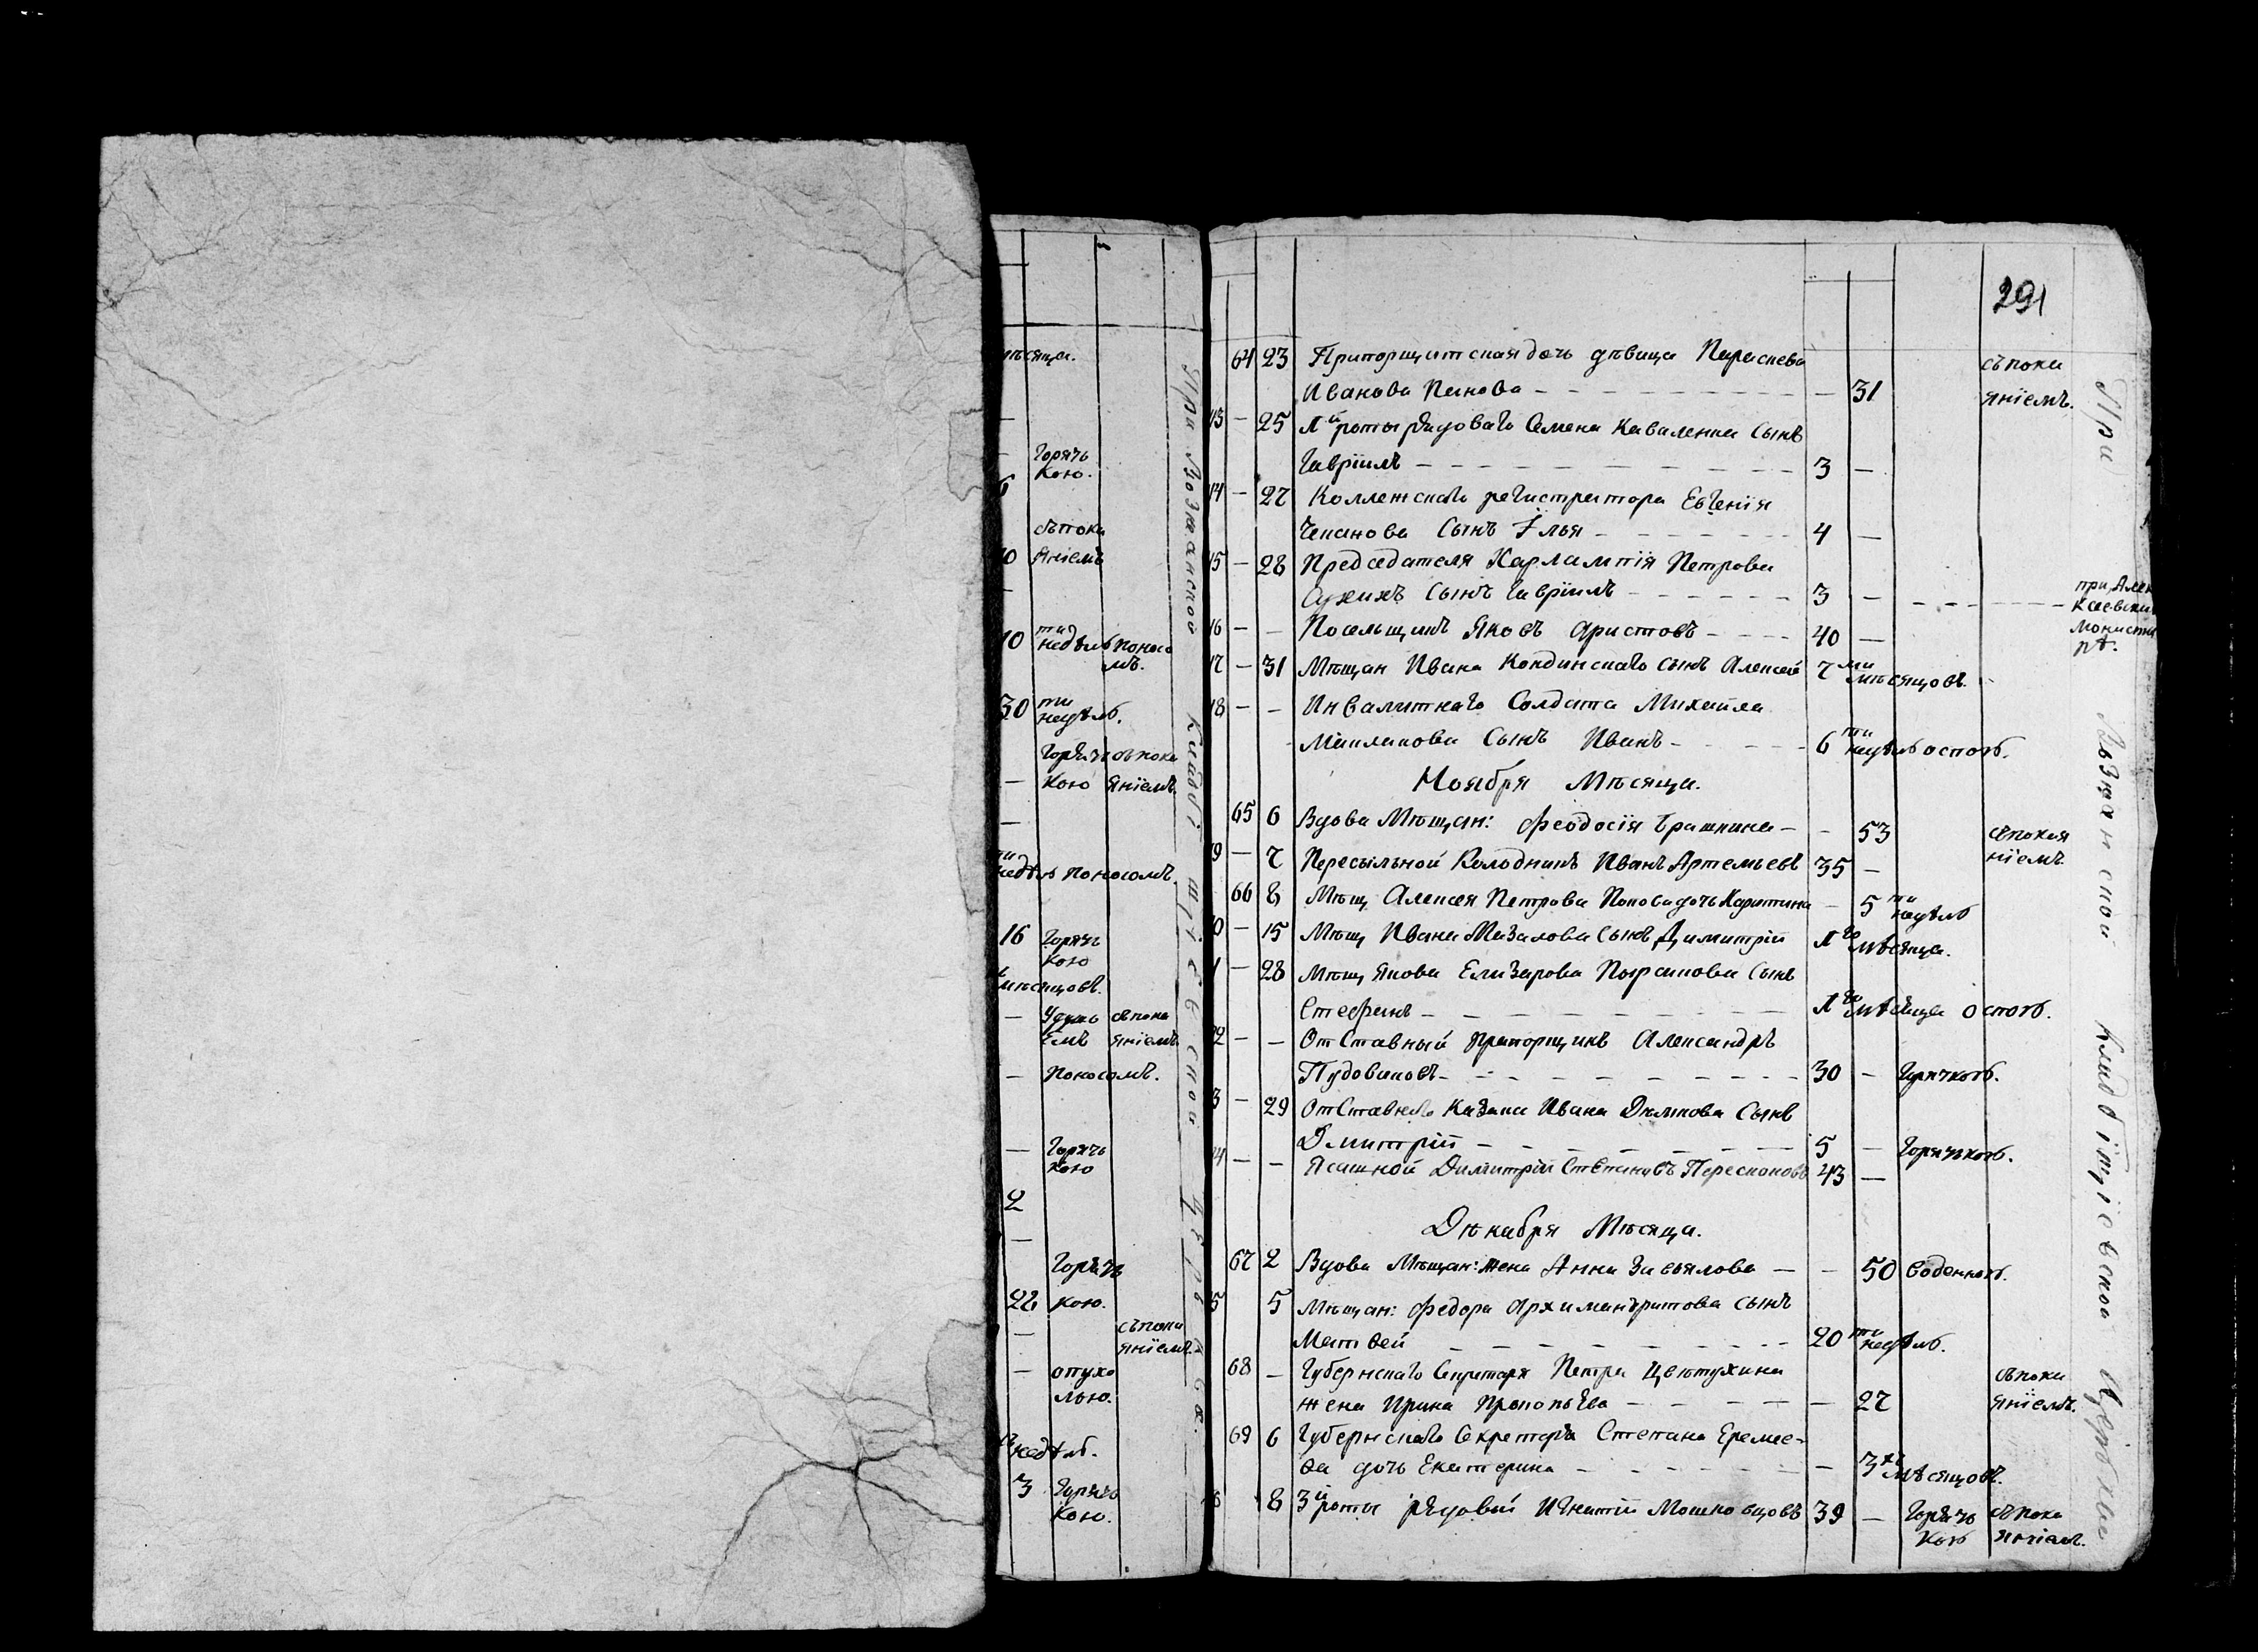 мѣсяца.
Горячь
кою.
съпока
яніемъ
10 ти недѣль поносо
мъ.
30 ти
недѣль.
Горячь съпока
кою яніемъ.
недѣль поносомъ.
16 Горячь
кою
мѣсяцовъ.
съпока
емъ яніемъ
Поносомъ.
Горячь
кою
2
Горячь
22 кою.
съпока
яніемъ.
опухо
лью.
недѣль.
3 Горячь
кою.
При Вознѣсенской
291
64 23 Прапорщитская дочь дѣвица Параскева
съпока
Иванова Панова — — 31 яніемъ.
13 — 25 1й роты рядоваго Семена Каваленка Сынъ
Гавріилъ — 3 —
14 — 27 Коллежскаго регистратора Евгенія
Чепанова Сынъ Илья — 4 —
15 — 28 Председателя Харлампія Петрова
Сухихъ Сынъ Гавріилъ — 3 —
при Алек
сеевском
монасты
рѣ.
16 — — Посельщикъ Яковъ Аристовъ — 40 —
17 — 31 Мѣщан Ивана Кондинскаго сынъ Алексей 7 ми мѣсяцовъ.
18 — — Инвалитнаго Солдата Михайла
Сынъ Иванъ — 6 ти недѣль оспою.
Ноября Мѣсяца.
65 6 Вдова Мѣщан: Феодосія — — 53 съпокая
ніемъ.
19 — 7 Пересыльной Колодникъ Иванъ Артемьевъ 35 —
66 8 Мѣщ Алексея Петрова Попова дочь Харитина — 5 ти недѣль
20 — 15 Мѣщ Ивана Мазалова сынъ Димитрій 1 го мѣсяца.
21 — 28 Мѣщ Якова Елизарова Сынъ
Стефанъ — 1 го мѣсяца оспою.
22 — — Отставный прапорщикъ Александръ
Пудовиковъ — 30 — Горячкою.
23 — 29 Отставнаго Казака Ивана Сынъ
Дмитрій — 5 — Горячькою.
24 — — Ясашной Димитрій Стѣпановъ 43 —
Дѣкабря Мѣсяца.
67 2 Вдова Мѣщан: жена Анна Завьялова — — 50 Воденною.
25 5 Мѣщан: Федора Архимандритова сынъ
Матвей — 20 ти недѣль.
68 — Губернскаго Секретаря Петра Цвѣтухина
съпока
жена Ирина Прокопьева — — 27 яніемъ.
69 6 Губернскаго Секретаря Степана Еремее-
ва дочь Екатерина — — 3 хъ мѣсяцовъ.
26 8 3й роты рядовый Игнатій Мошковцовъ 39 — Горячь съпока
кою яніемъ.
При
Церкви